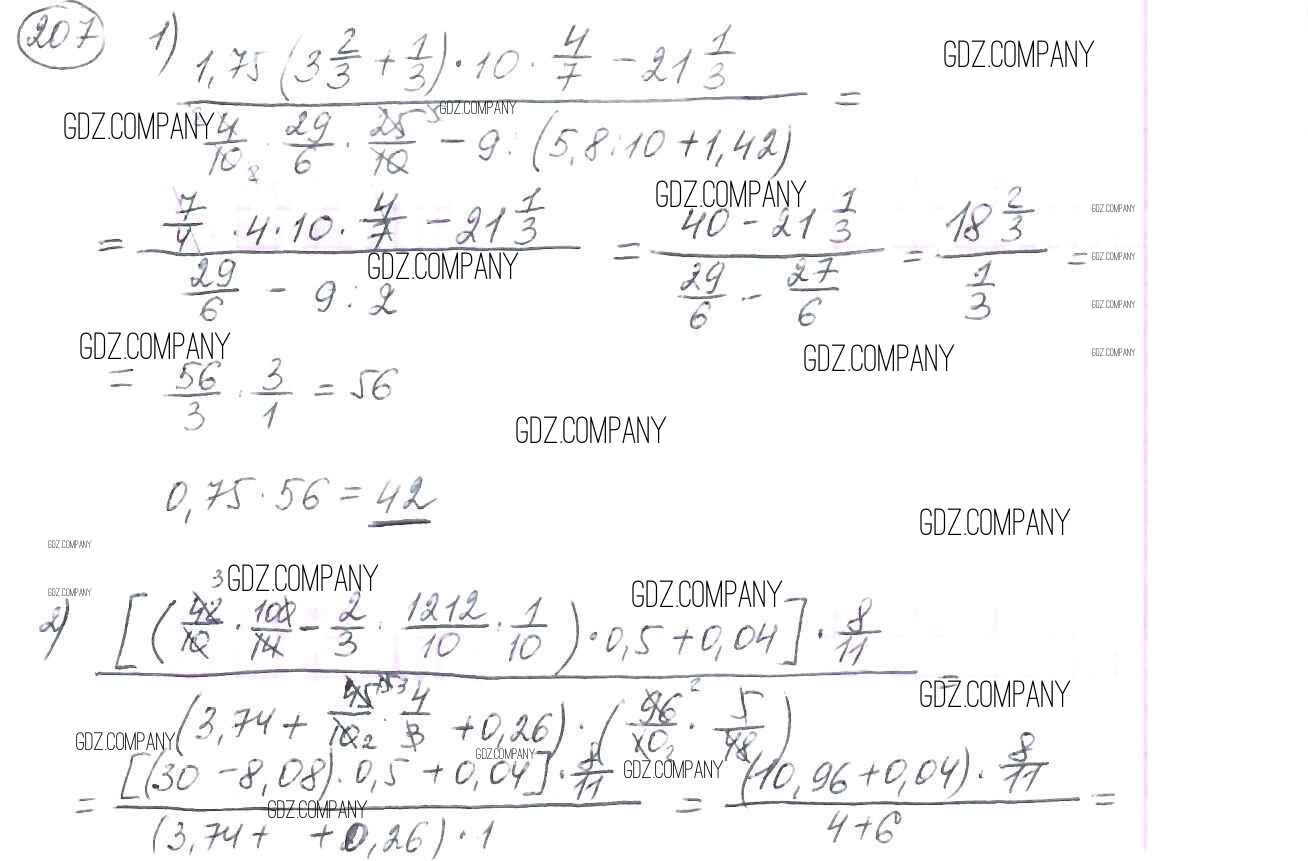 207 1) (1,75 (3 2/3 + 1/3) · 10 · 4/7 - 21 1/3) / (4/10 · 29/6 · 25/10 - 9 : (5,8 : 10 + 1,42)) =
GDZ.COMPANY
GDZ.COMPANY
GDZ.COMPANY
GDZ.COMPANY
= (7/4 · 4 · 10 · 4/7 - 21 1/3) / (29/6 - 9 : 2) = (40 - 21 1/3) / (29/6 - 27/6) = (18 2/3) / (1/3) =
GDZ.COMPANY
GDZ.COMPANY
GDZ.COMPANY
GDZ.COMPANY
GDZ.COMPANY
GDZ.COMPANY
GDZ.COMPANY
= 56/3 · 3/1 = 56
GDZ.COMPANY
0,75 · 56 = 42
GDZ.COMPANY
GDZ.COMPANY
GDZ.COMPANY
GDZ.COMPANY
GDZ.COMPANY
2) [(42/10 · 100/14 - 2/3 · 1212/10 · 1/10) · 0,5 + 0,04] · 8/11 / (3,74 + 45/10 · 4/3 + 0,26) · (96/10 · 5/48) =
GDZ.COMPANY
GDZ.COMPANY
GDZ.COMPANY
GDZ.COMPANY
GDZ.COMPANY
= [(30 - 8,08) · 0,5 + 0,04] · 8/11 / (3,74 + + 0,26) · 1 = (10,96 + 0,04) · 8/11 / 4 + 6 =